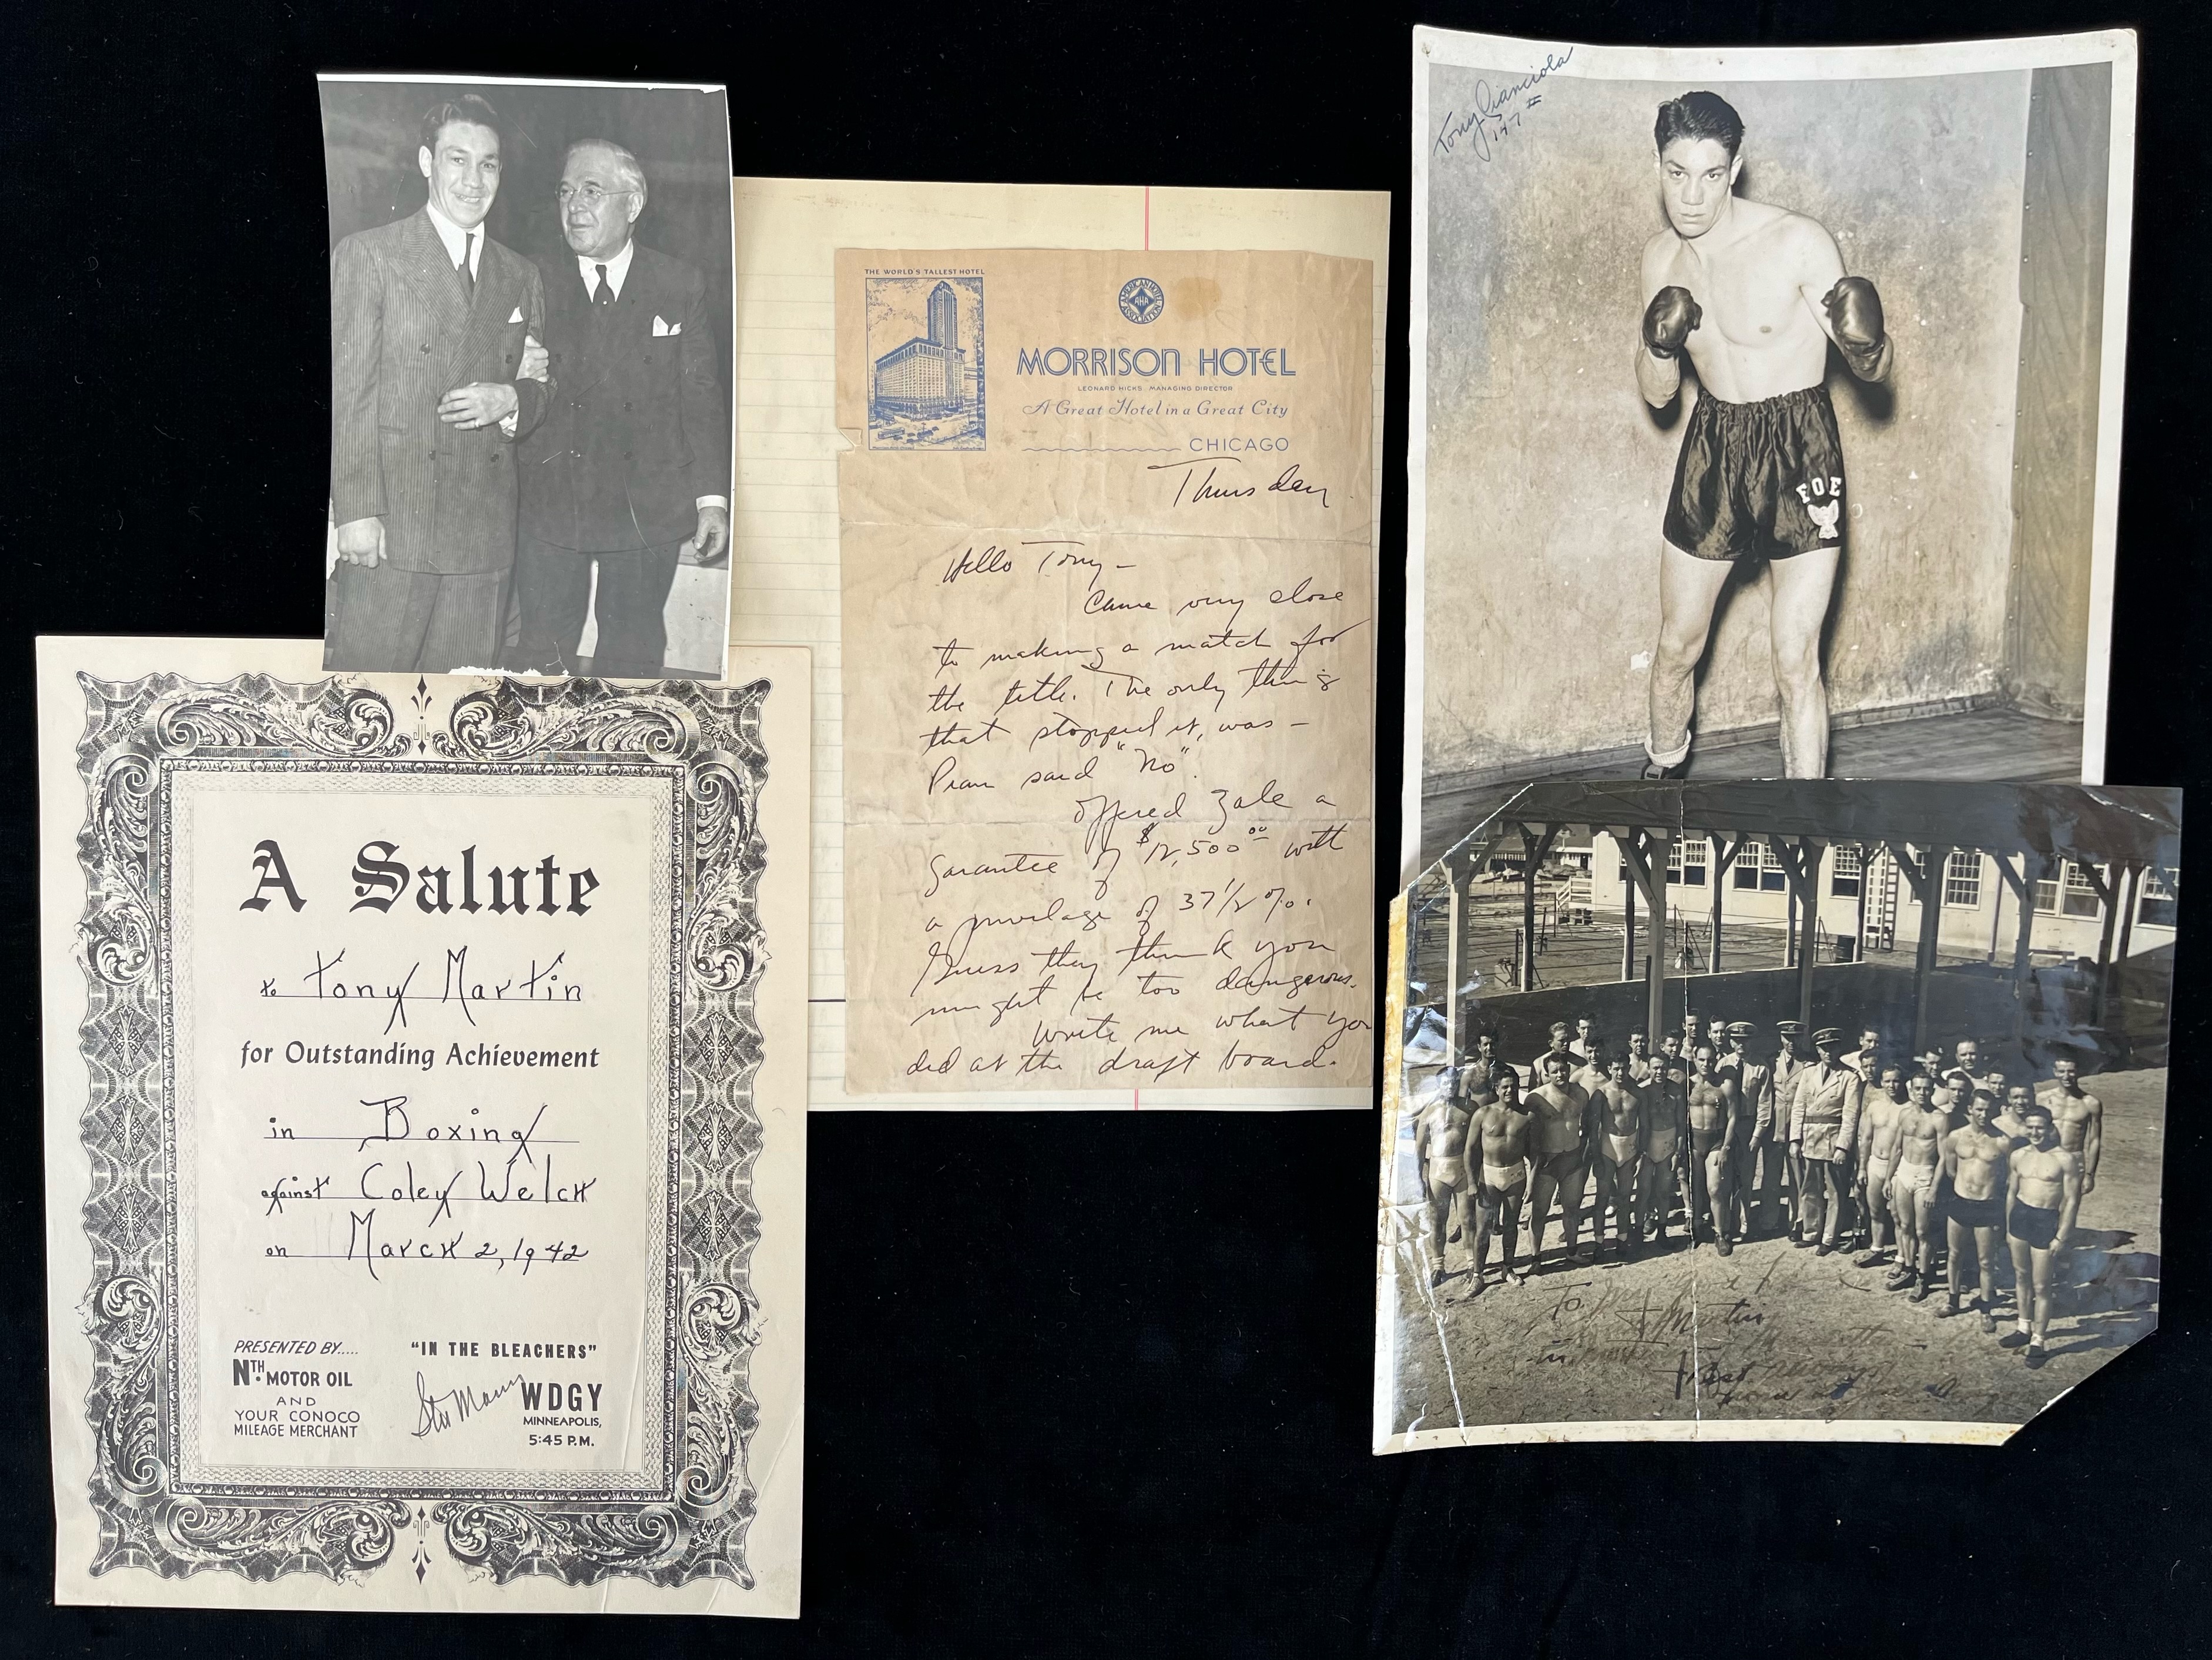 Tony Cianciola
147 #
THE WORLD'S TALLEST HOTEL
AMERICAN HOTEL ASSOCIATION
AHA
MORRISON HOTEL
LEONARD HICKS MANAGING DIRECTOR
A Great Hotel in a Great City
CHICAGO
Thursday
Hello Tony —
Came very close
to making a match for
the title. The only thing
that stopped it, was —
Pian said "No".
offered Zale a
garantee of $12,500.00 with
a privilage of 37 1/2 %.
Guess they think you
might be too dangerous.
Write me what you
did at the draft board.
FOE
A Salute
to Tony Martin
for Outstanding Achievement
in Boxing
against Coley Welch
on March 2, 1942
PRESENTED BY.....
NTH. MOTOR OIL
AND
YOUR CONOCO
MILEAGE MERCHANT
"IN THE BLEACHERS"
WDGY
MINNEAPOLIS,
5:45 P.M.
To My
Martin